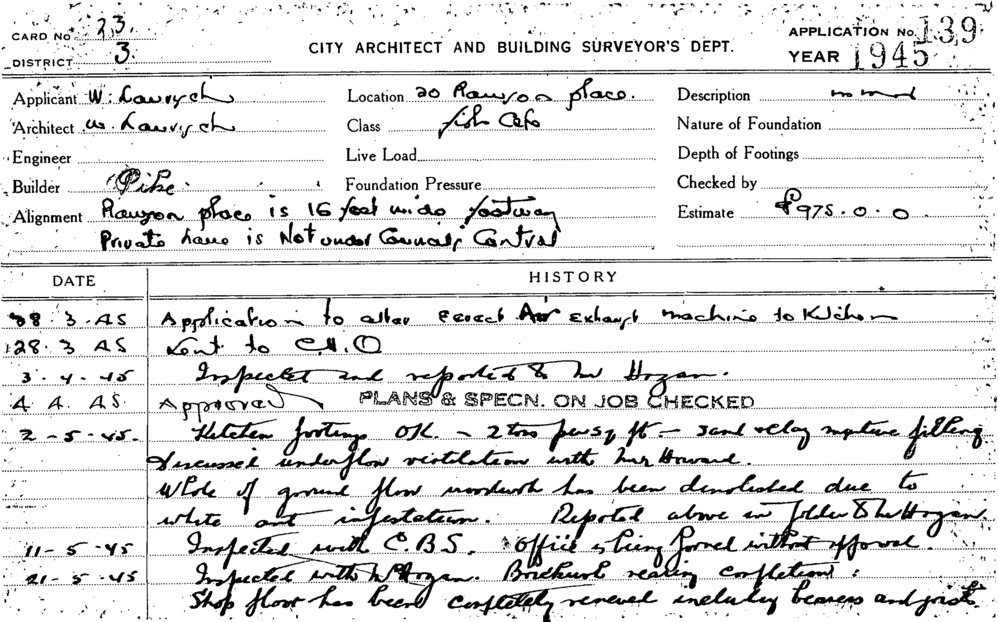 CARD No 23.
DISTRICT 3.
CITY ARCHITECT AND BUILDING SURVEYOR'S DEPT.
APPLICATION No. 139
YEAR 1945
Applicant W.
Location 20 Rawson place.
Description
Architect W.
Class fish Cafe
Nature of Foundation
Engineer
Live Load
Depth of Footings
Builder Pike
Foundation Pressure
Checked by
Alignment Rawson place is 16 feet wide footway
Estimate £975.0.0
Private Lane is Not under Council's Control
DATE
HISTORY
28.3.45 Application to alter & erect Air Exhaust machine to Kitchen
28.3 45 Sent to C.H.O
3.4.45 Inspected and reported to Mr Hogan.
4.4.45 Approved PLANS & SPECN. ON JOB CHECKED
2-5-45. Kitchen footings OK. - 2 tons per sq ft. - sand & clay filling
Discussed underfloor ventilation with Mr Howard.
Whole of ground floor woodwork has been demolished due to
white ant infestation. Reported above in folder to Mr Hogan
11-5-45 Inspected with C.B.S. Office is being formed without approval.
21-5-45 Inspected with Mr Hogan. Brickwork nearing completion:
Shop floor has been completely renewed including bearers and joists.